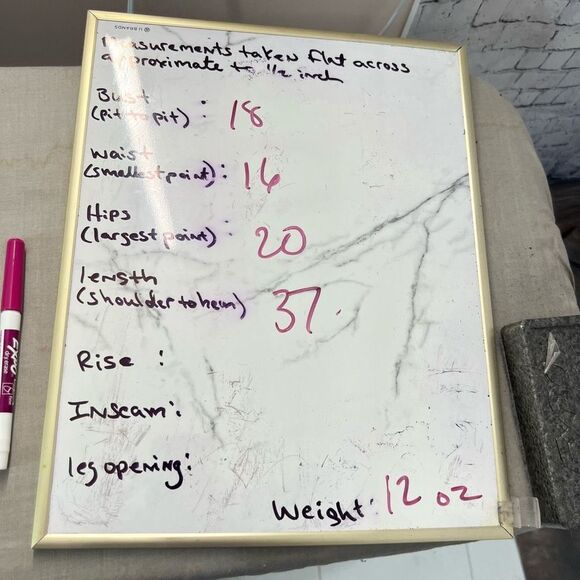 U BRANDS
Measurements taken flat across
approximate to 1/2 inch
Bust :
(pit to pit) : 18
waist
(smallest point) : 16
Hips :
(largest point) : 20
length
(shoulder to hem) 37.
Rise :
Inseam :
leg opening :
Weight : 12 oz
EXPO
dry erase